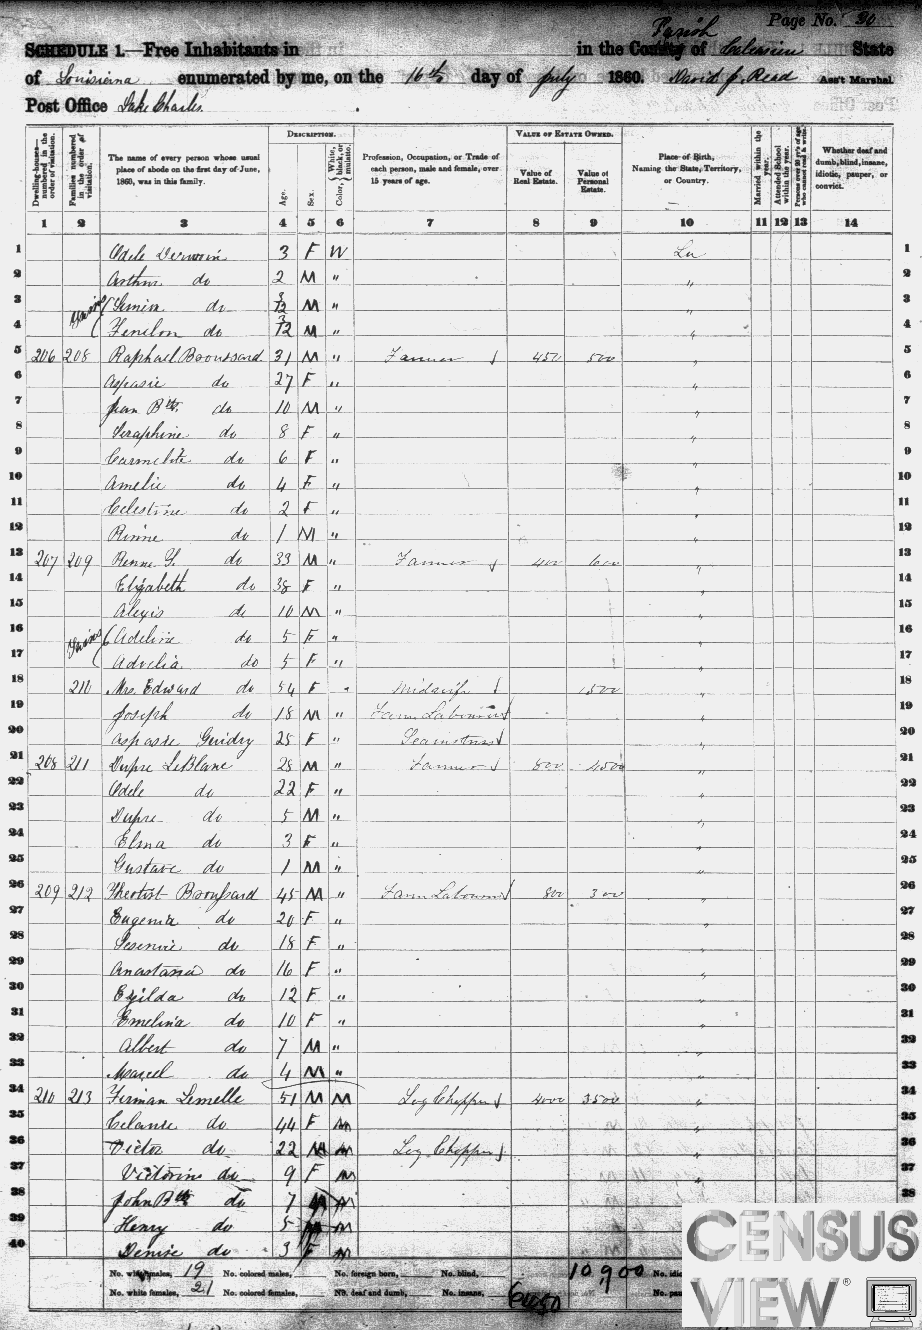 Page No. 30
SCHEDULE 1.—Free Inhabitants in in the County Parish of Calcasieu State
of Louisiana enumerated by me, on the 16th day of July 1860. David J. Read Ass't Marshal.
Post Office Lake Charles
Dwelling-houses—numbered in the order of visitation.
Families numbered in the order of visitation.
The name of every person whose usual place of abode on the first day of June, 1860, was in this family.
DESCRIPTION.
Age.
Sex.
Color, { White, black, or mulatto.
Profession, Occupation, or Trade of each person, male and female, over 15 years of age.
VALUE OF ESTATE OWNED.
Value of Real Estate.
Value of Personal Estate.
Place of Birth, Naming the State, Territory, or Country.
Married within the year.
Attended School within the year.
Persons over 20 y'rs of age who cannot read & write.
Whether deaf and dumb, blind, insane, idiotic, pauper, or convict.
1 2 3 4 5 6 7 8 9 10 11 12 13 14
1 Odele 3 F W La 1
2 Arthur do 2 M " " 2
3 Twins do 3/12 M " " 3
4 Fenelon do 3/12 M " " 4
5 206 208 Raphael Broussard 31 M " Farmer 450 500 " 5
6 Aspasie do 27 F " " 6
7 Jean Bte. do 10 M " " 7
8 Seraphine do 8 F " " 8
9 Carmelite do 6 F " " 9
10 Amelie do 4 F " " 10
11 Celestine do 2 F " " 11
12 do 1 M " " 12
13 207 209 Renne do 33 M " Farmer 400 600 " 13
14 Elizabeth do 38 F " " 14
15 Alexis do 10 M " " 15
16 Twins Adeline do 5 F " " 16
17 Advelia do 5 F " " 17
18 210 Mrs. Edward do 54 F " Midwife 1500 " 18
19 Joseph do 18 M " Farm Labourer " 19
20 Aspasie Guidry 25 F " Seamstress " 20
21 208 211 Dupre LeBlanc 28 M " Farmer 800 4500 " 21
22 Odele do 22 F " " 22
23 Dupre do 5 M " " 23
24 Elma do 3 F " " 24
25 Gustave do 1 M " " 25
26 209 212 Theotist Broussard 45 M " Farm Labourer 800 300 " 26
27 Eugenia do 20 F " " 27
28 do 18 F " " 28
29 Anastasia do 16 F " " 29
30 Ezilda do 12 F " " 30
31 Emelina do 10 F " " 31
32 Albert do 7 M " " 32
33 Marcel do 4 M " " 33
34 210 213 Firman Lemelle 51 M M Log Chopper 4000 3500 " 34
35 Celanse do 44 F M " 35
36 Victor do 22 M M Log Chopper " 36
37 Victorine do 9 F M " 37
38 John Bte do 7 M M 38
39 Henry do 5 M M
40 Denise do 3 F M
No. white males, 19 No. colored males, No. foreign born, No. blind, 10,900 No. idio
No. white females, 21 No. colored females, No. deaf and dumb, No. insane, 6450 No. pau
CENSUS VIEW®